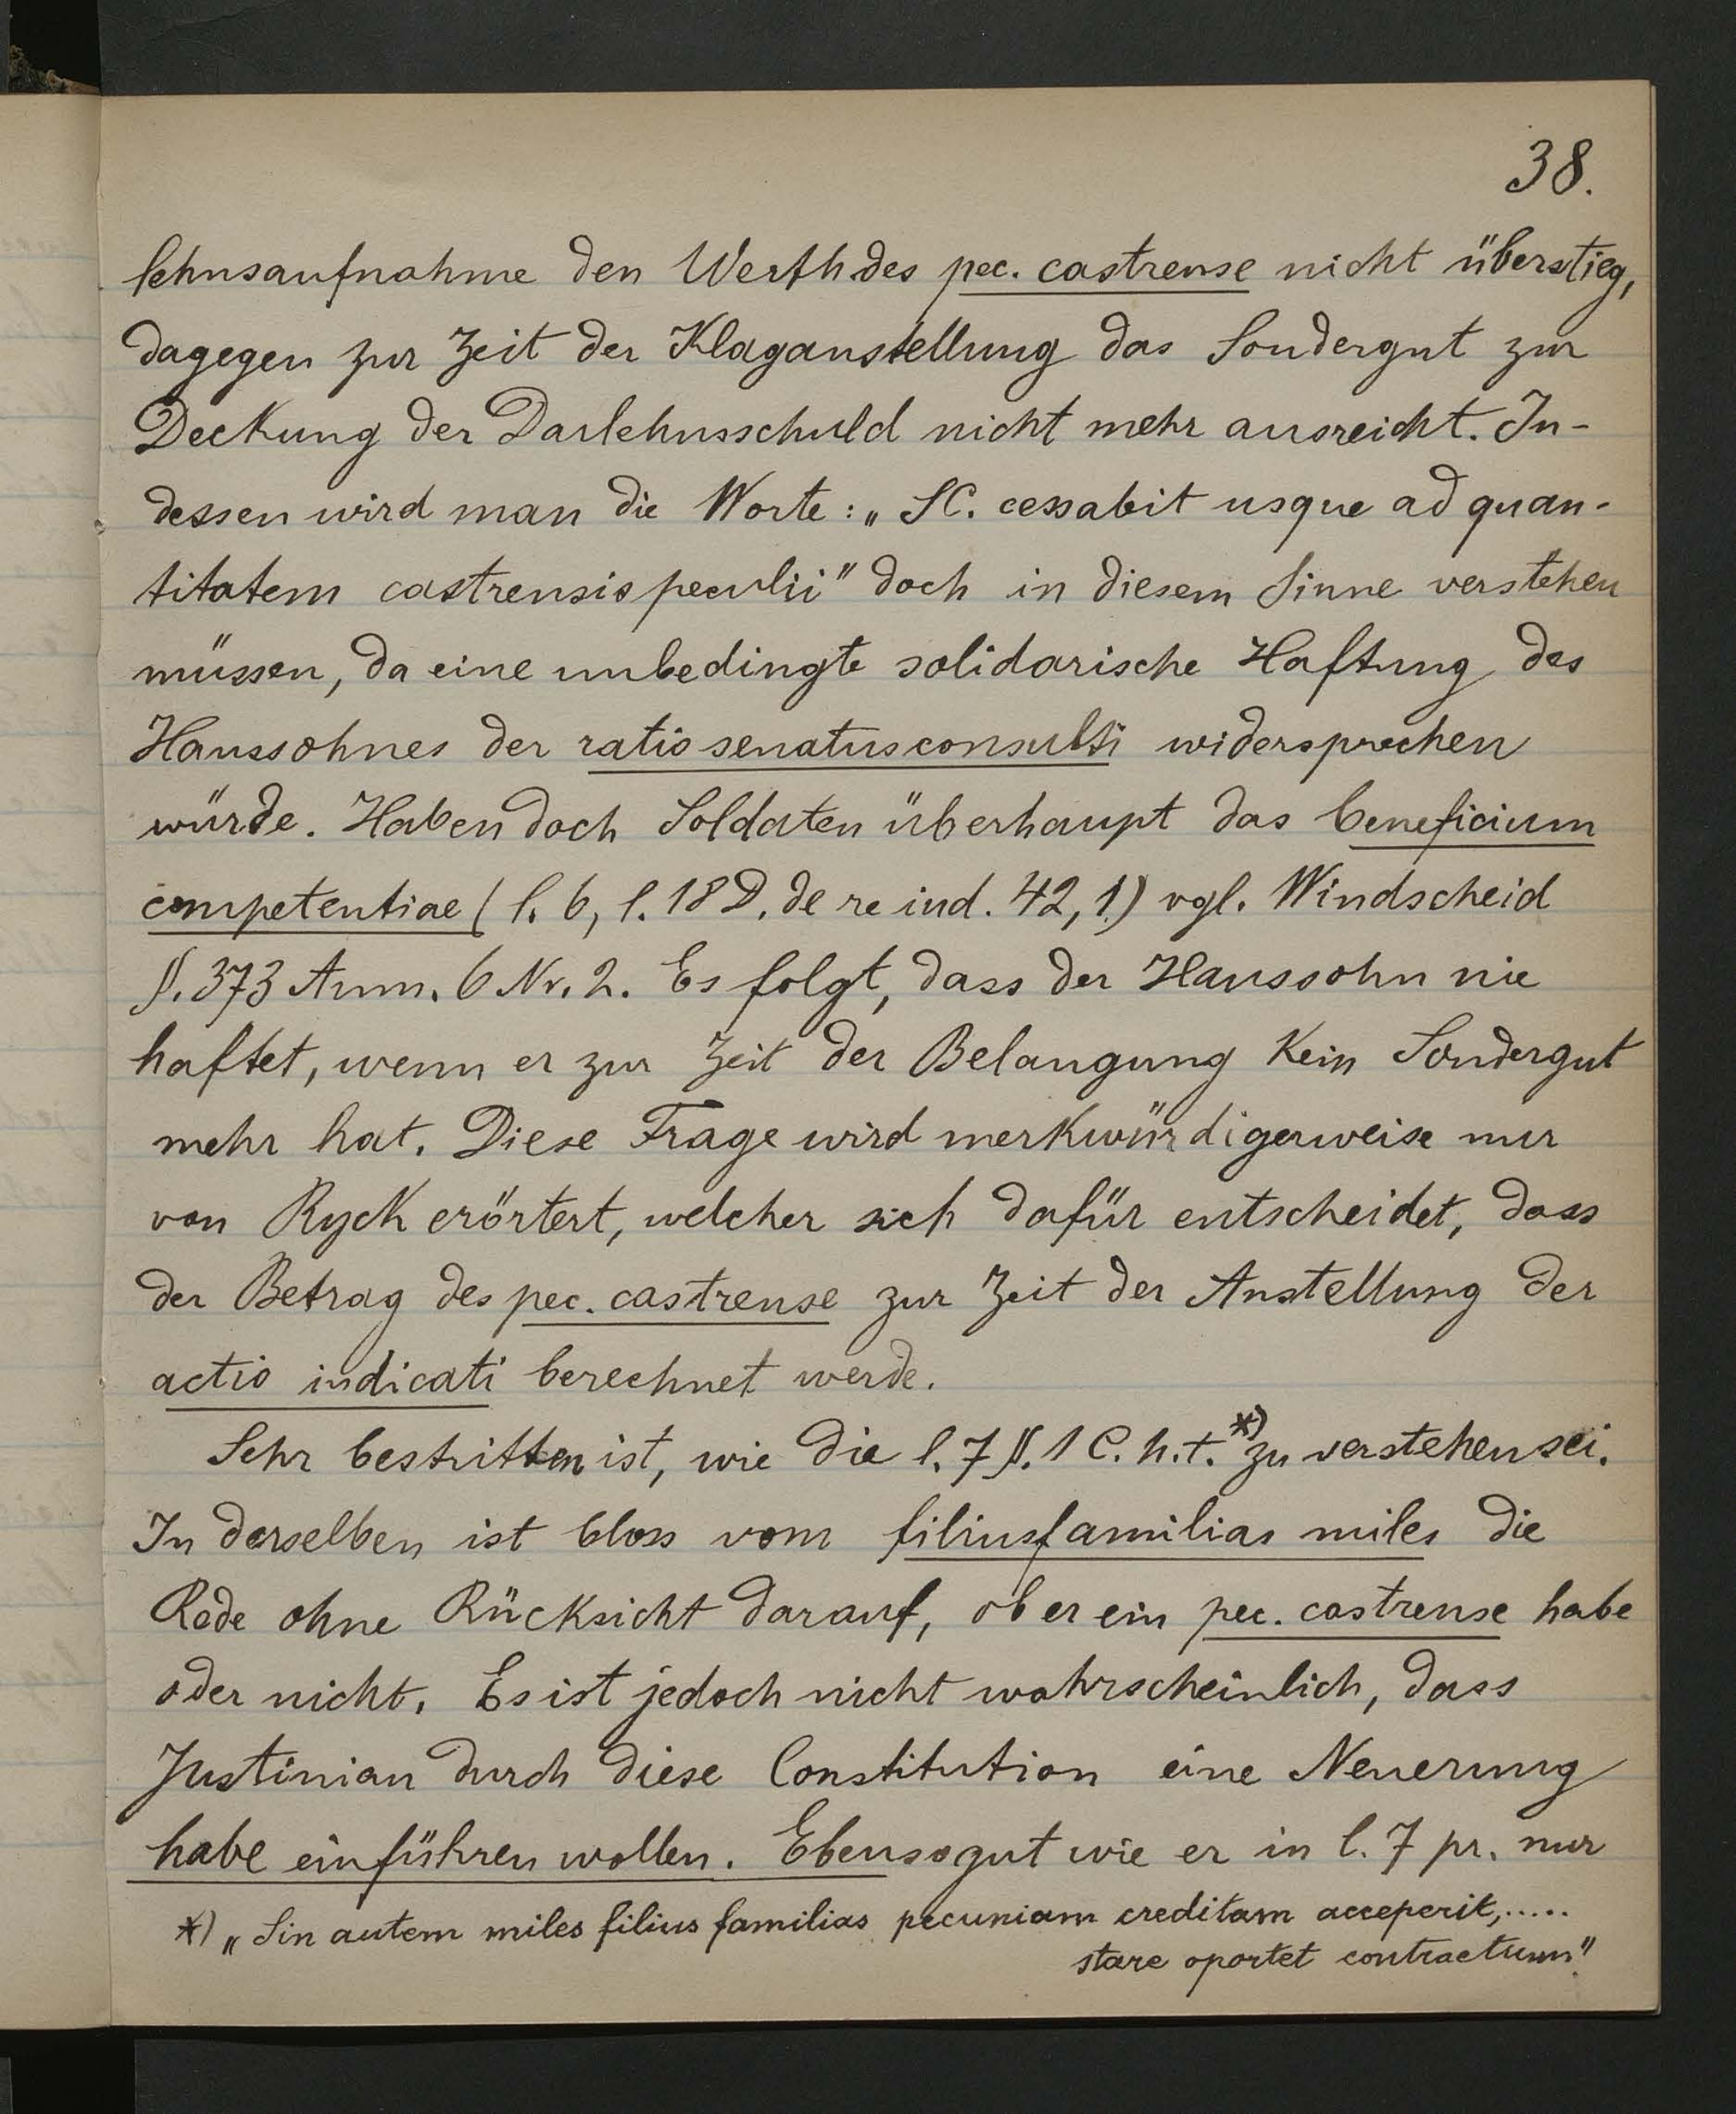 38.
lehnsaufnahme den Werth des pec. castrense nicht überstieg,
dagegen zur Zeit der Klaganstellung das Sondergut zur
Deckung der Darlehnsschuld nicht mehr ausreicht. In-
dessen wird man die Worte: „SC. cessabit usque ad quan-
titatem castrensis peculii" doch in diesem Sinne verstehen
müssen, da eine unbedingte solidarische Haftung des
Haussohnes der ratio senatusconsulti widersprechen
würde. Haben doch Soldaten überhaupt das beneficium
competentiae (l. 6, l. 18 D. de re iud. 42, 1) vgl. Windscheid
§. 373 Anm. 6 Nr. 2. Es folgt, dass der Haussohn nie
haftet, wenn er zur Zeit der Belangung kein Sondergut
mehr hat. Diese Frage wird merkwürdigerweise nur
von Ryck erörtert, welcher sich dafür entscheidet, dass
der Betrag des pec. castrense zur Zeit der Anstellung der
actio iudicati berechnet werde.
Sehr bestritten ist, wie die l. 7 §. 1 C. h. t. *) zu verstehen sei.
In derselben ist bloss vom filiusfamilias miles die
Rede ohne Rücksicht darauf, ob er ein pec. castrense habe
oder nicht. Es ist jedoch nicht wahrscheinlich, dass
Justinian durch diese Constitution eine Neuerung
habe einführen wollen. Ebensogut wie er in l. 7 pr. nur
*) „Sin autem miles filius familias pecuniam creditam acceperit, .....
stare oportet contractum."